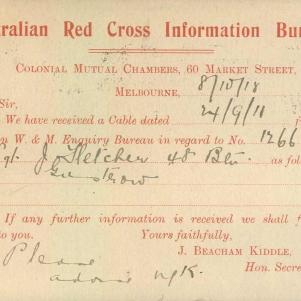 ralian Red Cross Information Bu
COLONIAL MUTUAL CHAMBERS, 60 MARKET STREET,
MELBOURNE, 8/10/18
Sir,
We have received a Cable dated 24/9/18 f
W. & M. Enquiry Bureau in regard to No. 1266
Sgt. J. Fletcher 48 Btn. as fol
If any further information is received we shall f
to you. Yours faithfully,
J. BEACHAM KIDDLE,
Please Hon. Secre
advise N.O.K.